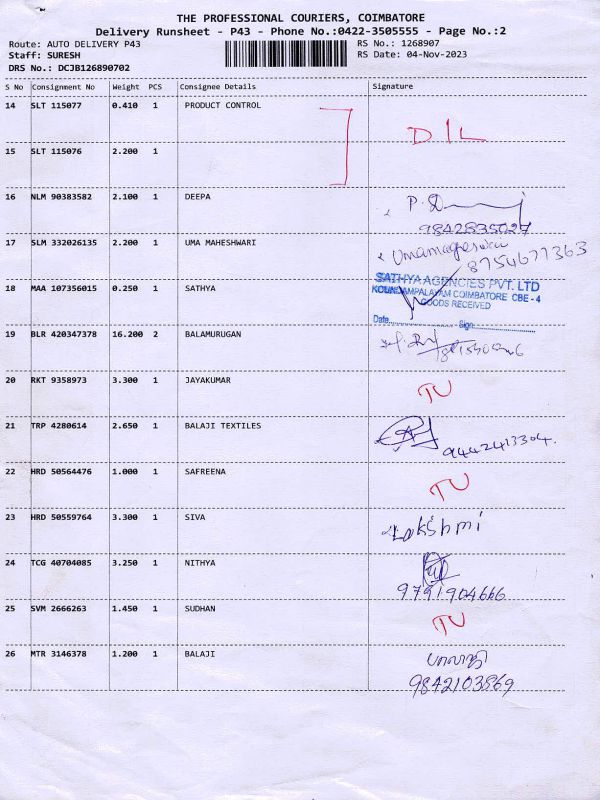 THE PROFESSIONAL COURIERS, COIMBATORE
Delivery Runsheet - P43 - Phone No.:0422-3505555 - Page No.:2
Route: AUTO DELIVERY P43 RS No.: 1268907
Staff: SURESH RS Date: 04-Nov-2023
DRS No.: DCJB126890702
S No Consignment No Weight PCS Consignee Details Signature
14 SLT 115077 0.410 1 PRODUCT CONTROL
D/L
15 SLT 115076 2.200 1
16 NLM 90383582 2.100 1 DEEPA P.
9842835027
17 SLM 332026135 2.200 1 UMA MAHESHWARI Umamageswari
8754677363
SATHYA AGENCIES PVT. LTD
18 MAA 107356015 0.250 1 SATHYA KOUNDAMPALAYAM COIMBATORE CBE - 4
GOODS RECEIVED
Date Sign
19 BLR 420347378 16.200 2 BALAMURUGAN
20 RKT 9358973 3.300 1 JAYAKUMAR TU
21 TRP 4280614 2.650 1 BALAJI TEXTILES 9442413304.
22 HRD 50564476 1.000 1 SAFREENA TU
23 HRD 50559764 3.300 1 SIVA Lakshmi
24 TCG 40704085 3.250 1 NITHYA
9791904666
25 SVM 2666263 1.450 1 SUDHAN TU
26 MTR 3146378 1.200 1 BALAJI பாலாஜி
9842103869